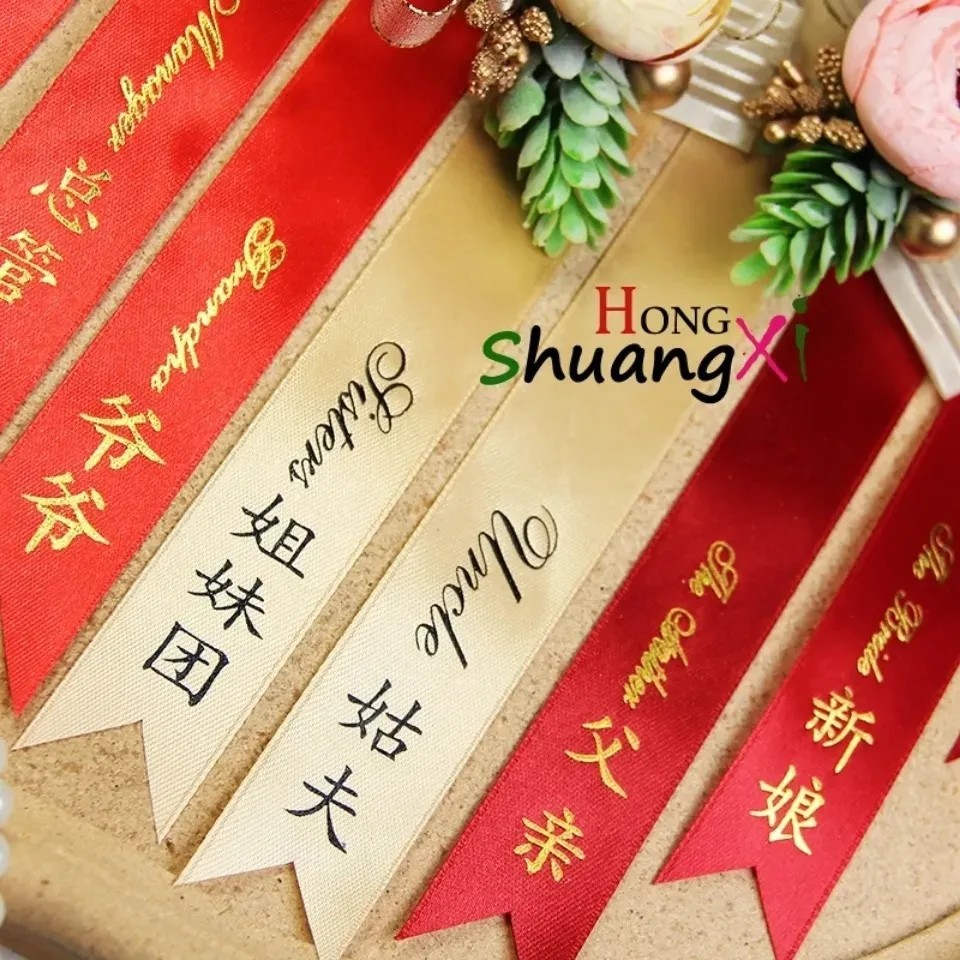 Manager
Grandpa
爷爷
Sisters
姐妹团
Uncle
姑夫
The Father
父亲
The Bride
新娘
HONG
ShuangXi